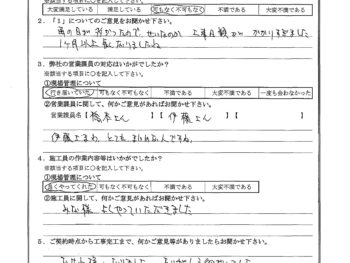 大変満足している 満足している 可もなく不可もなく 不満である 大変不満である
2.「1」についてのご意見をお聞かせ下さい。
雨の日が多かったので、せいなのか 工事日数 かかりすぎました
1ヶ月以上
3. 弊社の営業議員の対応はいかがでしたか？
※該当する項目に○を記入して下さい。
①現場管理について
行き届いていた 可もなく不可もなく 不満である 大変不満である 一度も会わなかった
②営業議員に関して、何かご意見があればお聞かせ下さい。
営業議員名【橋本さん】【伊藤さん】【
伊藤さまわ、とても まじめな人ですね。
4. 施工員の作業内容等はいかがでしたか？
※該当する項目に○を記入して下さい。
①現場管理について
良くやってくれた 可もなく不可もなく 不満である 大変不満である
②施工員に関して、何かご意見があればお聞かせ下さい。
みな様 よくやっていただきました
5、ご契約時点から工事完工まで、何かご意見等がありましたらお聞かせ下さい。